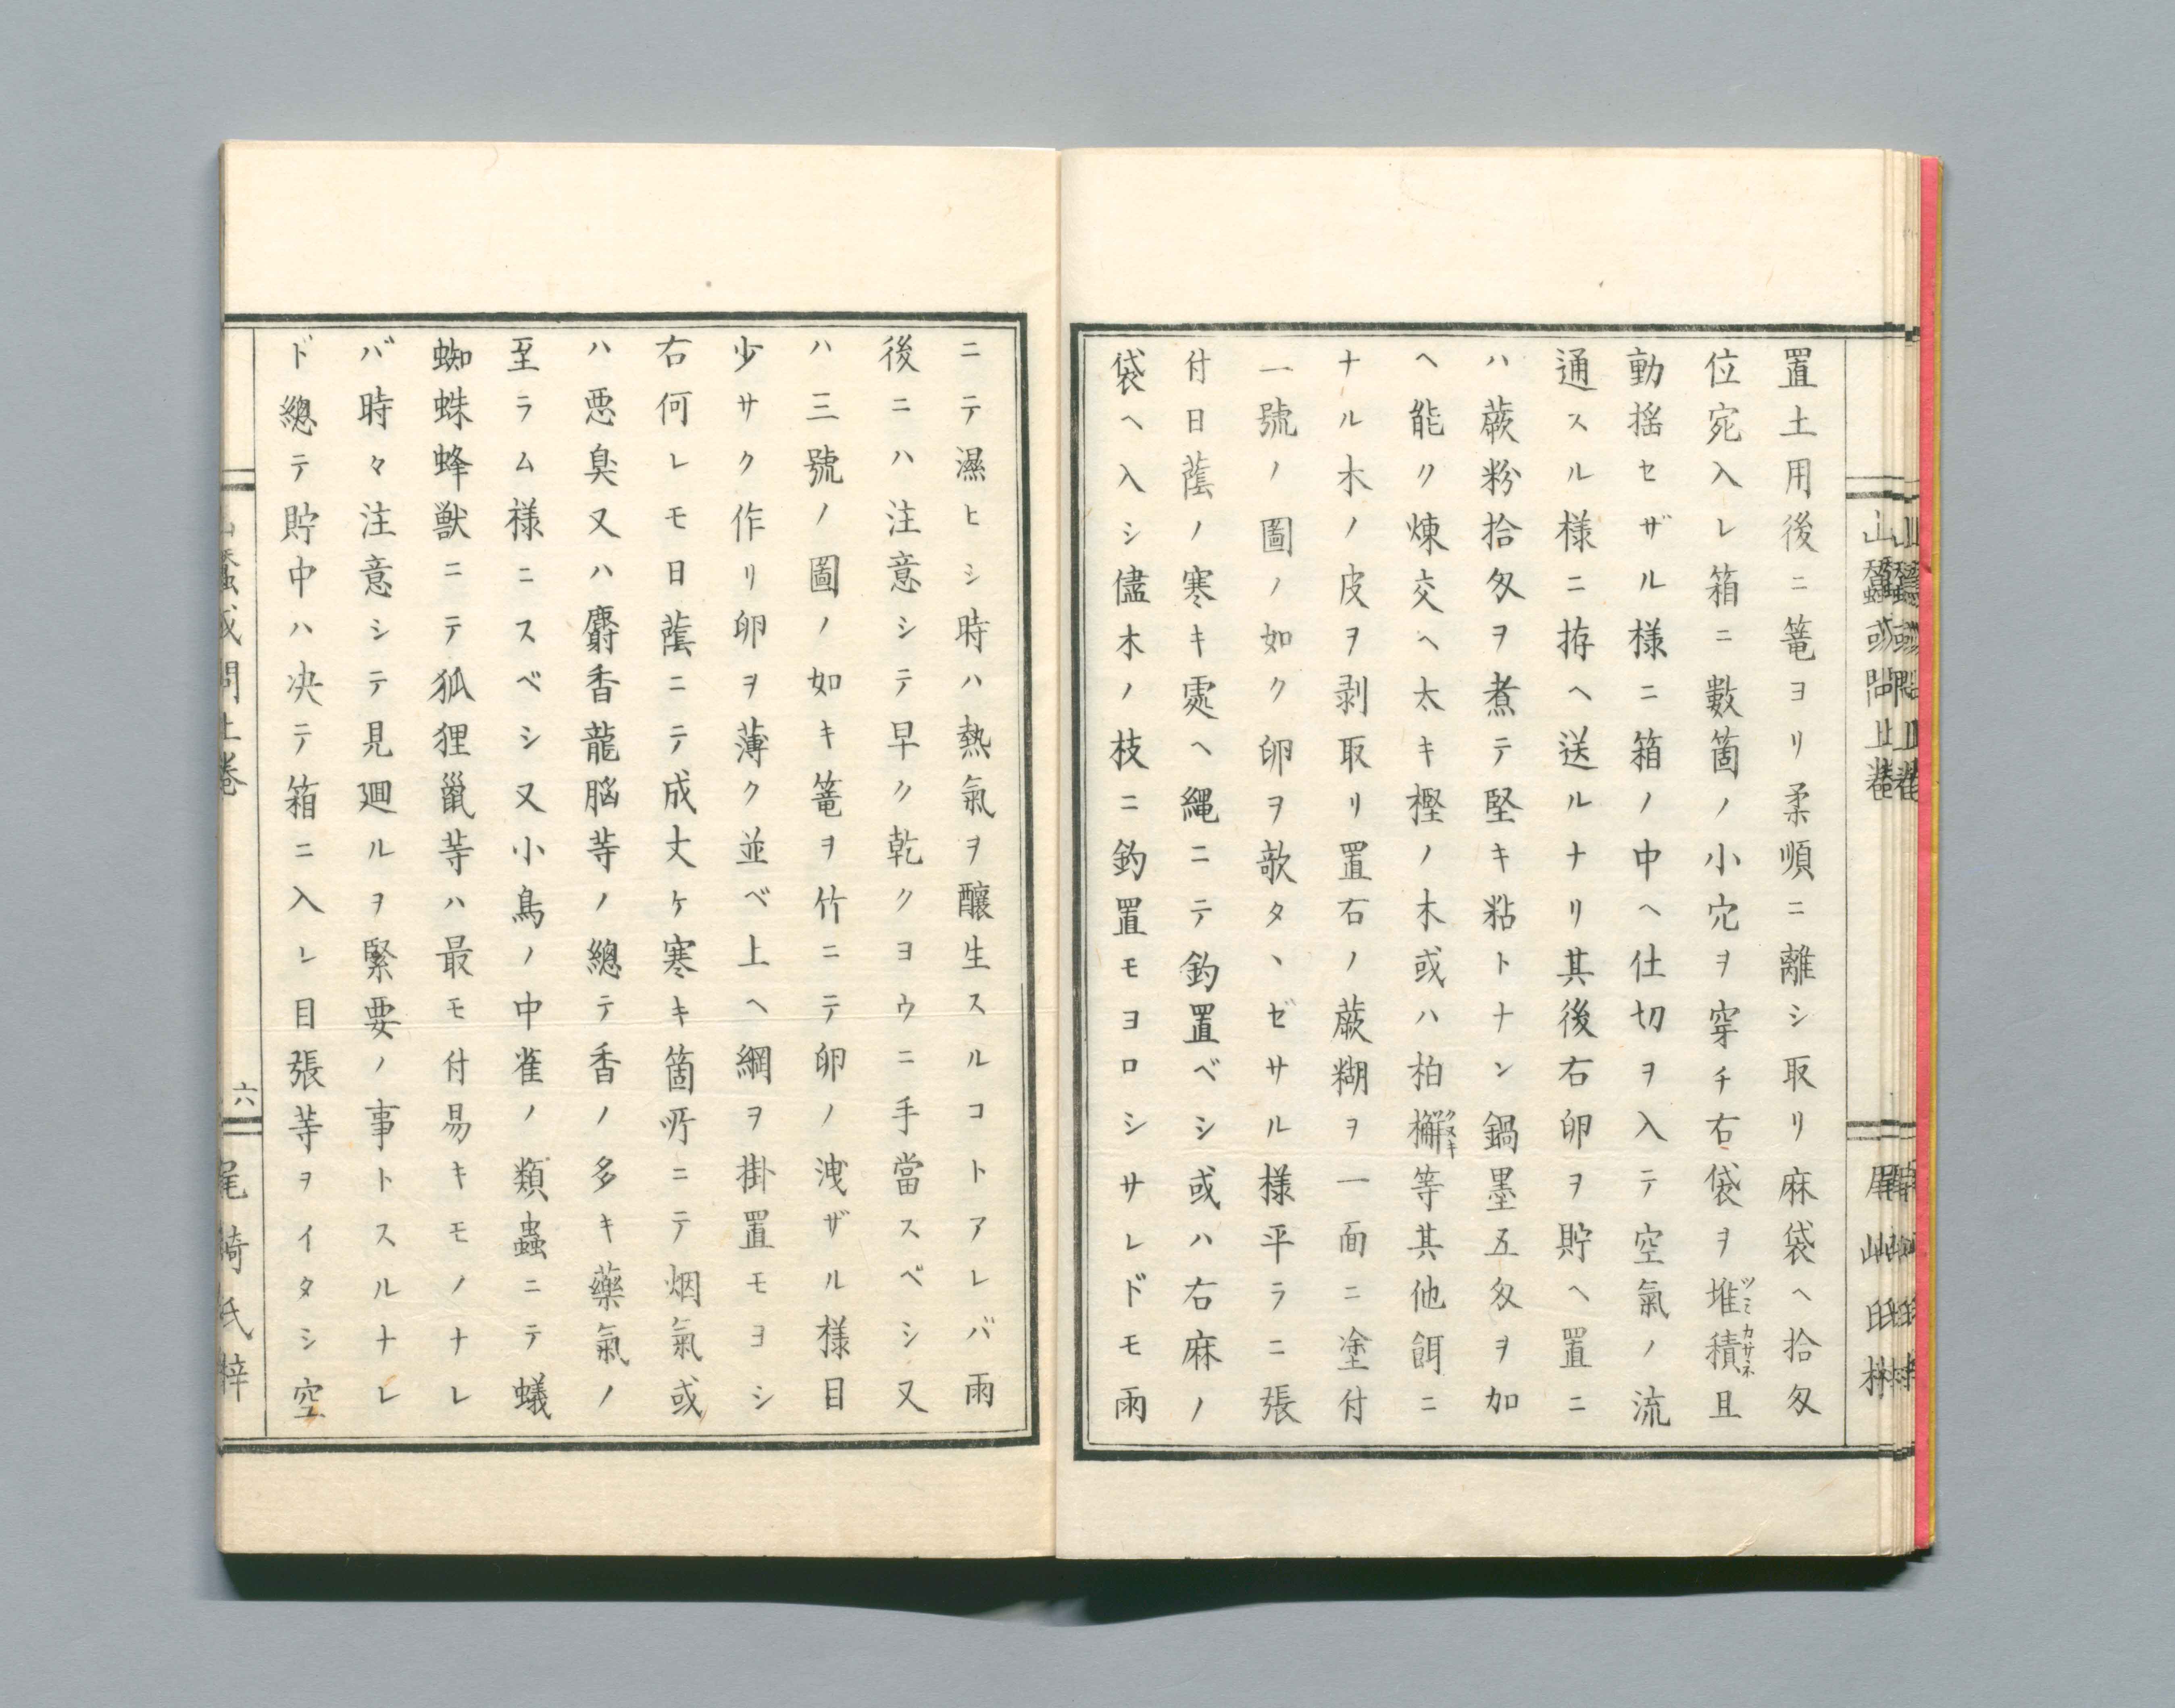 置土用後ニ篭ヨリ柔順ニ離シ取リ麻袋ヘ拾匁
位宛入レ箱ニ數箇ノ小穴ヲ穿チ右袋ヲ堆積且
ツミカサネ
動揺セザル様ニ箱ノ中ヘ仕切ヲ入テ空氣ノ流
通スル様ニ拵ヘ送ルナリ其後右卵ヲ貯ヘ置ニ
ハ蕨粉拾匁ヲ煮テ堅キ粘トナン鍋墨五匁ヲ加
ヘ能ク煉交ヘ太キ樫ノ木或ハ柏檞等其他餌ニ
クヌキ
ナル木ノ皮ヲ剥取リ置石ノ蕨糊ヲ一面ニ塗付
一號ノ圖ノ如ク卵ヲ歃タヽゼサル様平ラニ張
付日蔭ノ寒キ處ヘ縄ニテ釣置ベシ或ハ右麻ノ
袋ヘ入シ儘木ノ枝ニ釣置モヨロシサレドモ雨
ニテ濕ヒシ時ハ熱氣ヲ釀生スルコトアレバ雨
後ニハ注意シテ早ク乾クヨウニ手當スベシ又
ハ三號ノ圖ノ如キ篭ヲ竹ニテ卵ノ洩ザル様目
少サク作リ卵ヲ薄ク並ベ上ヘ網ヲ掛置モヨシ
右何レモ日蔭ニテ成丈ケ寒キ箇所ニテ烟氣或
ハ悪臭又ハ麝香龍脳等ノ總テ香ノ多キ藥氣ノ
至ラム様ニスベシ又小鳥ノ中雀ノ類蟲ニテ蟻
蜘蛛蜂獣ニテ狐狸鼠等ハ最モ付易キモノナレ
バ時々注意シテ見廻ルヲ緊要ノ事トスルナレ
ド總テ貯中ハ决テ箱ニ入レ目張等ヲイタシ空
山蠶或問上巻
六
尾﨑氏梓